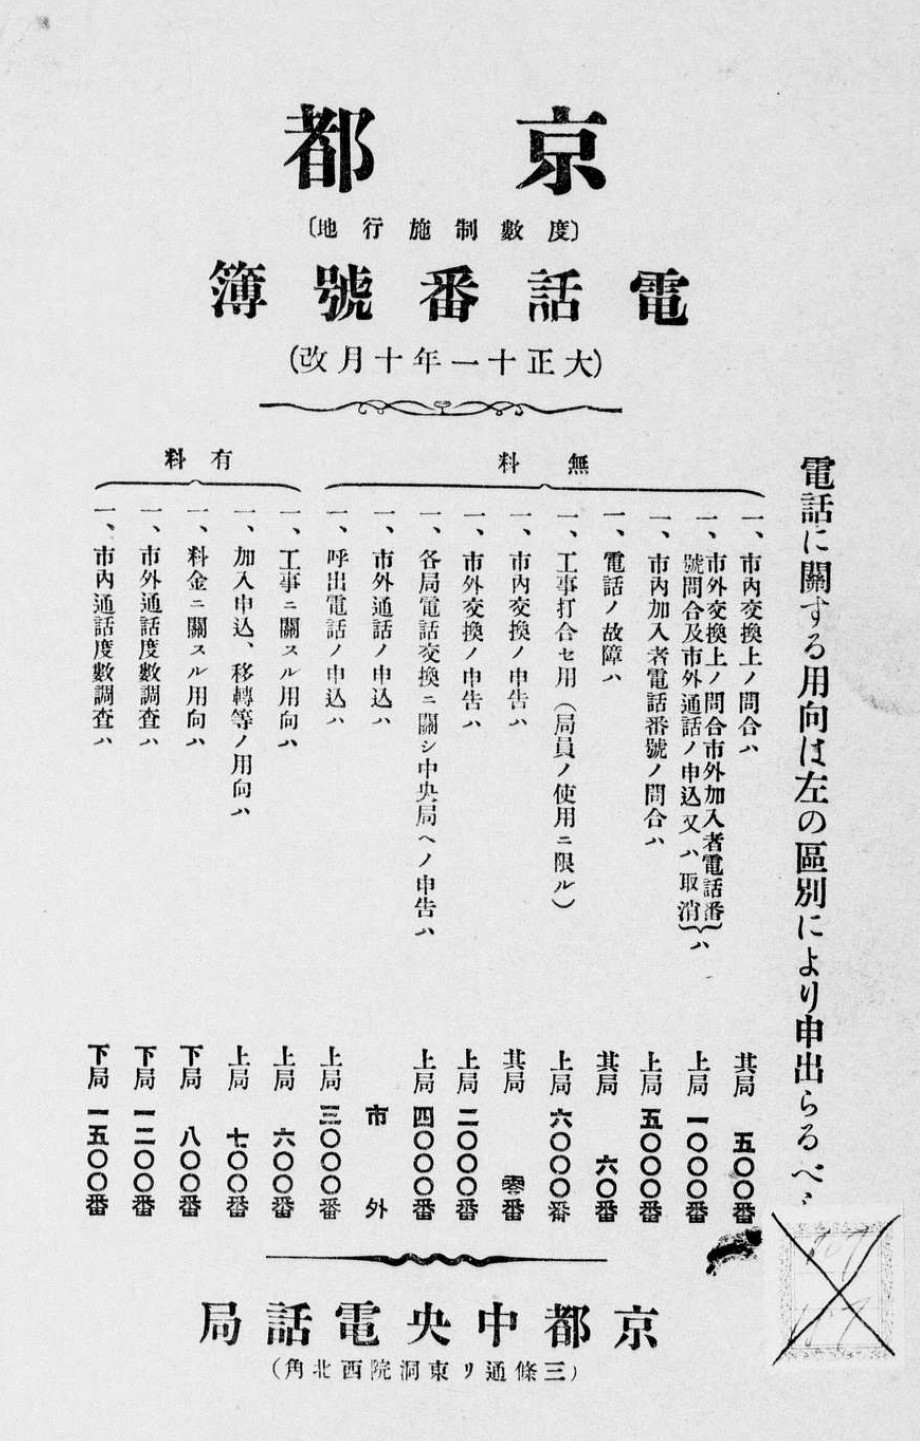 京都
〔度數制施行地〕
電話番號簿
(大正十一年十月改)
電話に關する用向は左の區別により申出らるべ
無料
一、市內交換上ノ問合ハ 其局 五〇〇番
一、市外交換上ノ問合市外加入者電話番
號問合及市外通話ノ申込又ハ取消ハ 上局 一〇〇〇番
一、市內加入者電話番號ノ問合ハ 上局 五〇〇〇番
一、電話ノ故障ハ 其局 六〇番
一、工事打合セ用(局員ノ使用ニ限ル) 上局 六〇〇〇番
一、市內交換ノ申告ハ 其局 零番
一、市外交換ノ申告ハ 上局 二〇〇〇番
一、各局電話交換ニ關シ中央局ヘノ申告ハ 上局 四〇〇〇番
一、市外通話ノ申込ハ 市外
一、呼出電話ノ申込ハ 上局 三〇〇〇番
有料
一、工事ニ關スル用向ハ 上局 六〇〇番
一、加入申込、移轉等ノ用向ハ 上局 七〇〇番
一、料金ニ關スル用向ハ 下局 八〇〇番
一、市外通話度數調査ハ 下局 一二〇〇番
一、市內通話度數調査ハ 下局 一五〇〇番
京都中央電話局
(三條通リ東洞院西北角)